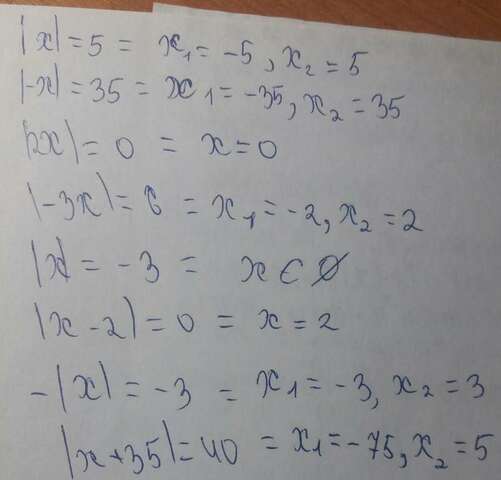 |x| = 5 = x₁ = -5, x₂ = 5
|-x| = 35 = x₁ = -35, x₂ = 35
|2x| = 0 = x = 0
|-3x| = 6 = x₁ = -2, x₂ = 2
|x| = -3 = x ∈ ∅
|x - 2| = 0 = x = 2
-|x| = -3 = x₁ = -3, x₂ = 3
|x + 35| = 40 = x₁ = -75, x₂ = 5